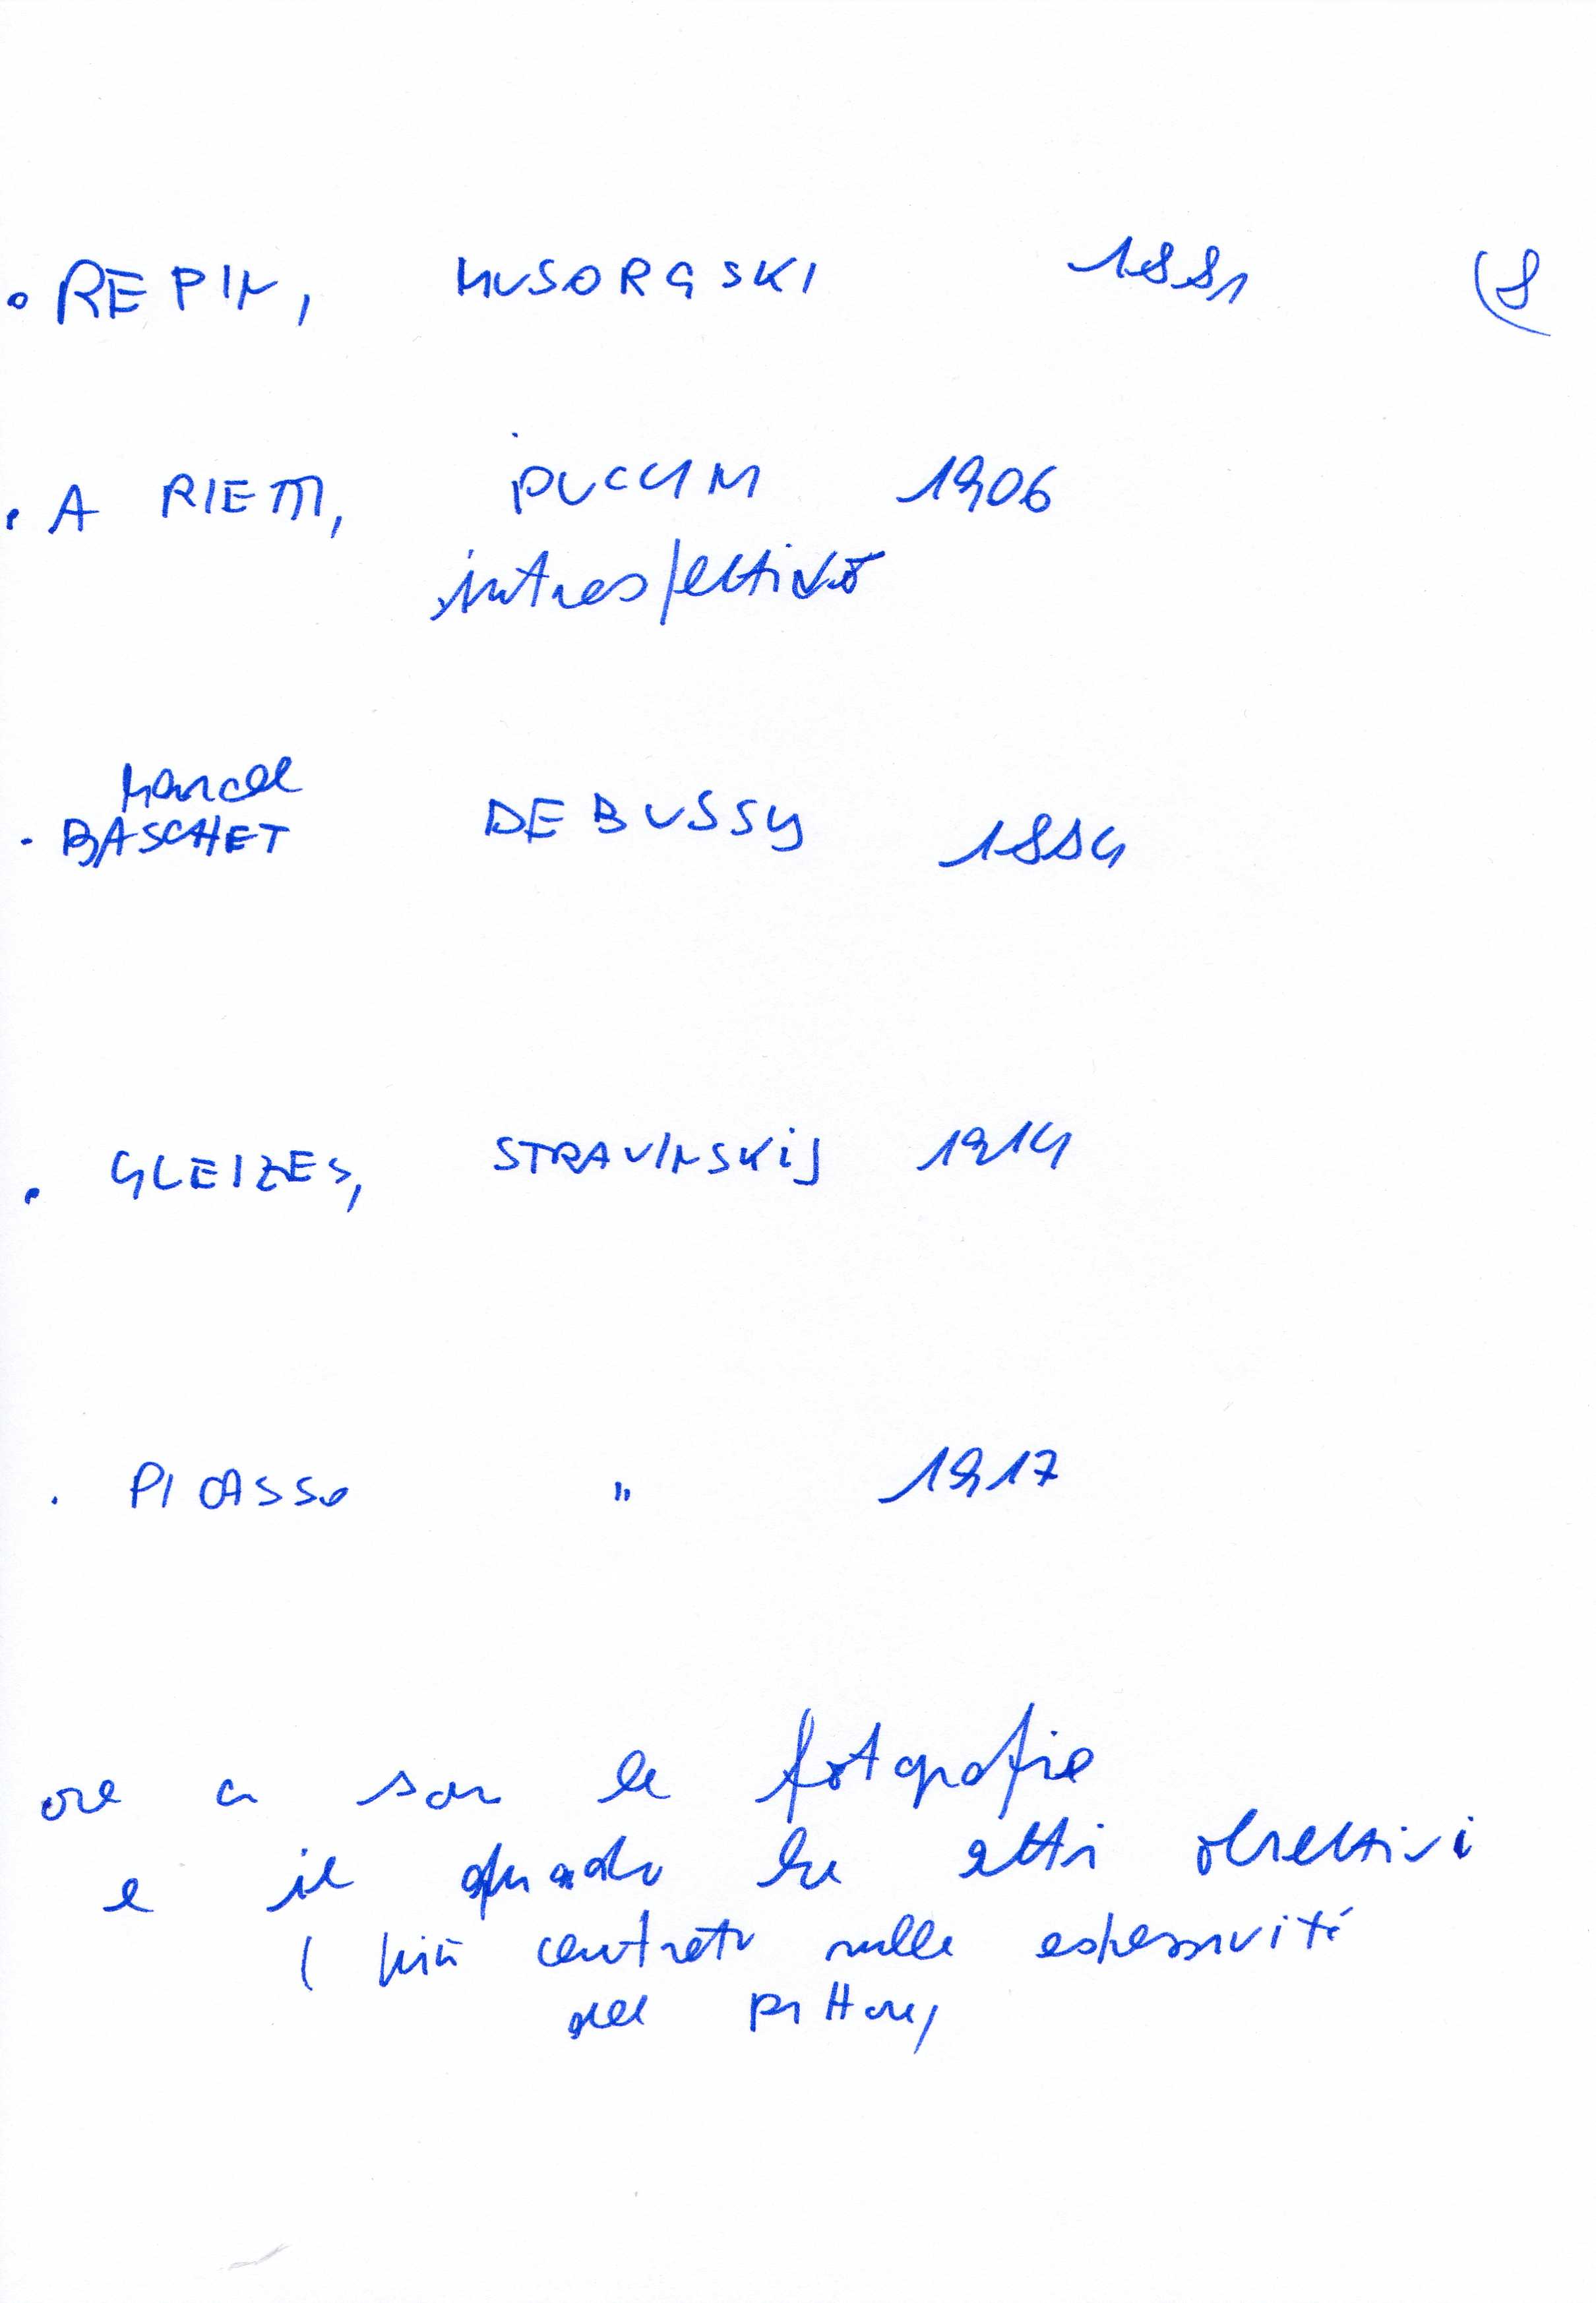 • REPIN, MUSORGSKI 1881 (8
• A RIETTI, PUCCINI 1906
introspettivo
Marcel
- BASCHET DEBUSSY 1884
• GLEIZES, STRAVINSKIJ 1914
• PICASSO " 1917
ora ci son le fotografie
e il quadro ha altri obiettivi
( più centrato sulla espressività
del pittore)